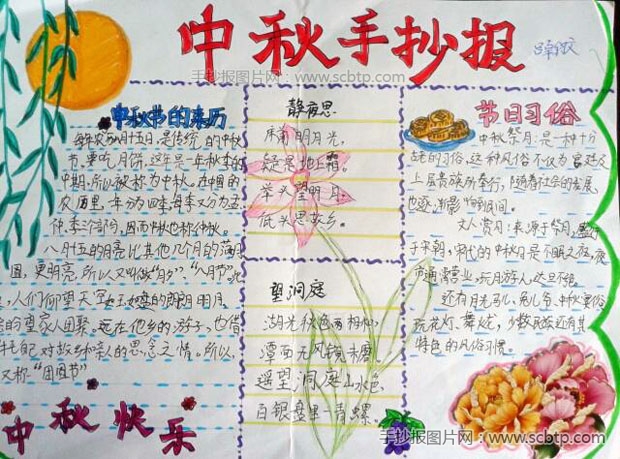 中秋手抄报
手抄报图片网：www.scbtp.com
中秋节的来历
每年农历八月十五日,是传统的中秋
节
中期,所以被称为中秋。在中国的
农历里,一年分四季,每季又分为孟、
仲、季三个部分,因而中秋也称仲秋。
八月十五的月亮比其他几个月的满月
圆,更明亮,所以又叫做“月夕”,“八月节”。此
夜,人们仰望天空如玉如盘的朗朗明月,
会盼望家人团聚。远在他乡的游子,也借
托自己对故乡和亲人的思念之情。所以,
又称“团圆节”
中秋快乐
静夜思
床前明月光,
疑是地上霜。
举头望明月,
低头思故乡。
望洞庭
湖光秋色两相和
潭面无风镜未磨
遥望洞庭山水色
白银盘里一青螺。
节日习俗
中秋祭月:是一种十分
古老的习俗,这种风俗不仅为宫廷及
上层贵族所奉行,随着社会的发展
也逐渐影响到民间。
文人赏月:来源于祭月,盛
于宋朝,宋代的中秋月是不眠之夜,夜
市通宵营业,玩月游人,达旦不绝。
玩花灯、舞火龙,少数民族还有其
特色的风俗习惯。
手抄报图片网：www.scbtp.com